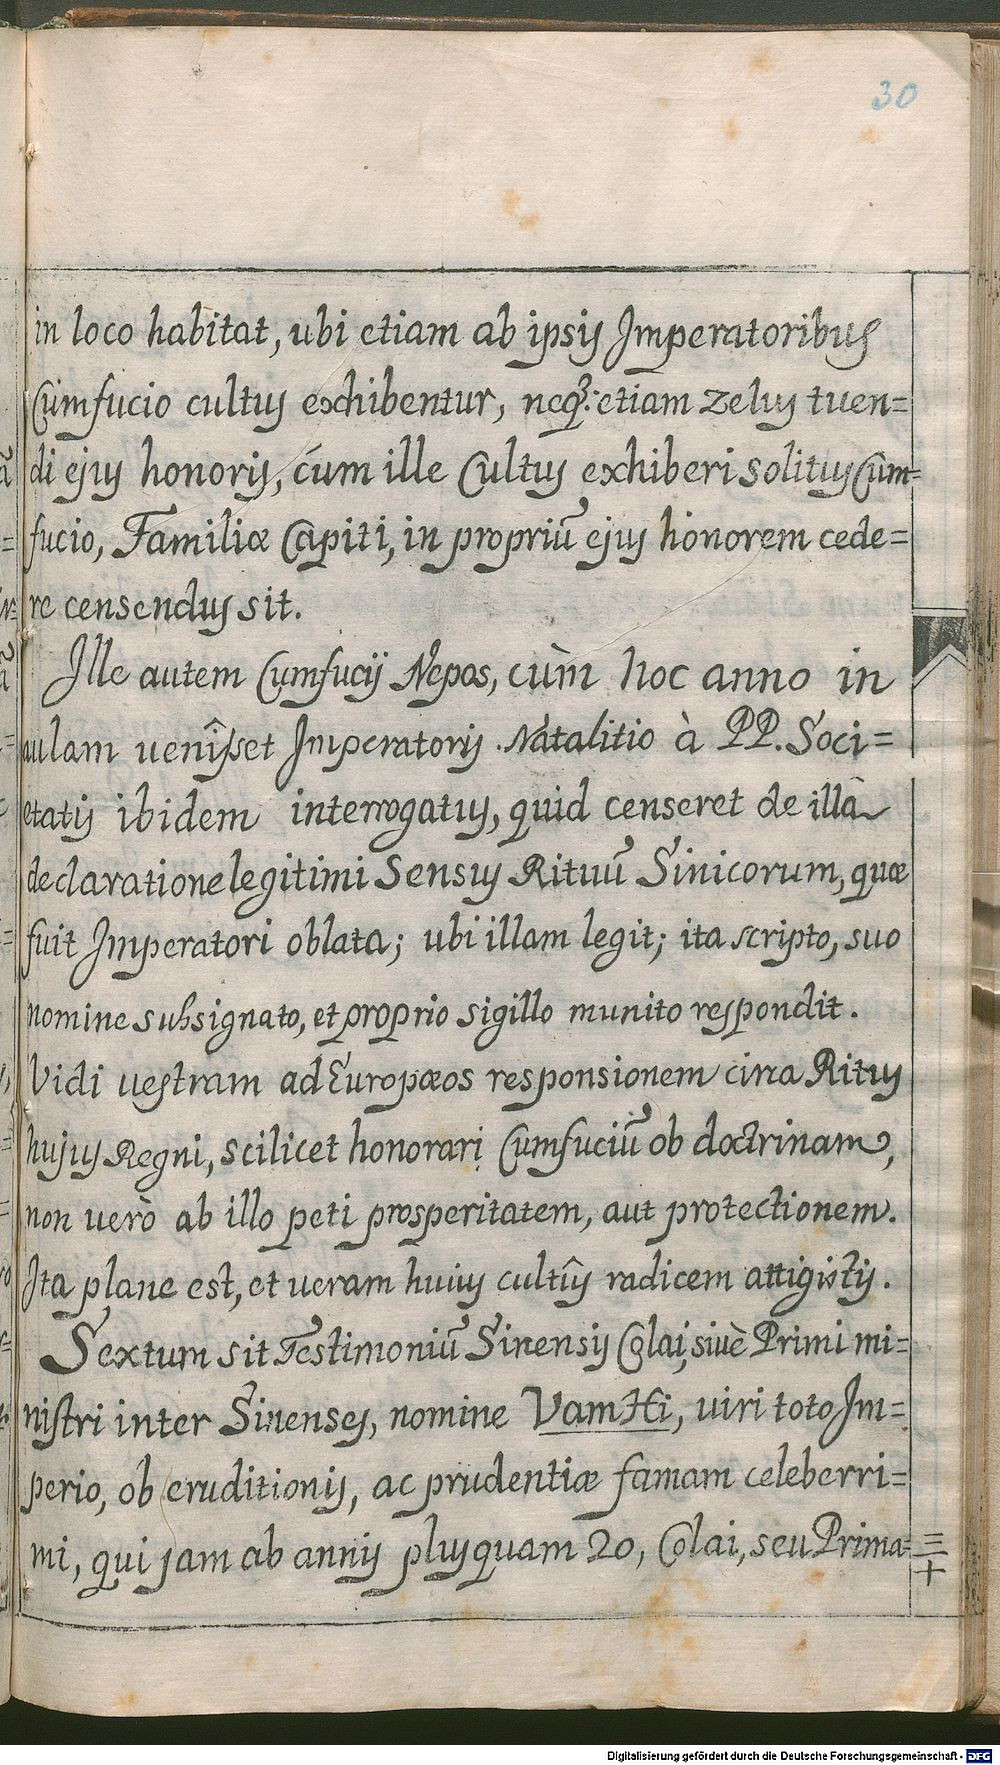 30
in loco habitat, ubi etiam ab ipsis Imperatoribus
Cumfucio cultus exhibentur, neq₃: etiam zelus tuen=
di ejus honoris, cum ille Cultus exhiberi solitus Cum=
fucio, Familiæ Capiti, in propriũ ejus honorem cede=
re censendus sit.
Ille autem Cumfucij Nepos, cùm hoc anno in
aulam venîsset Imperatoris Natalitio à PP. Soci=
etatis ibidem interrogatus, quid censeret de illâ
declaratione legitimi Sensus Rituũ Sinicorum, quæ
fuit Imperatori oblata; ubi illam legit; ita scripto, suo
nomine subsignato, et proprio sigillo munito respondit.
Vidi vestram ad Europæos responsionem circa Ritus
hujus Regni, scilicet honorari Cumfuciũ ob doctrinam,
non verò ab illo peti prosperitatem, aut protectionem.
Ita plane est, et veram huius cultûs radicem attigistis.
Sextum sit Testimoniũ Sinensis Colai, sivè Primi mi=
nistri inter Sinenses, nomine Vam Hi, viri toto Im=
perio, ob eruditionis, ac prudentiæ famam celeberri=
mi, qui jam ab annis plusquam 20, Colai, seu Prima=
三
十
Digitalisierung gefördert durch die Deutsche Forschungsgemeinschaft - DFG